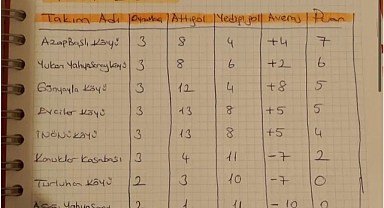 Takım Adı Oynadığı Attıgol Yedigigol Averaj Puan
Azapbaşlı köyü 3 8 4 +4 7
Yukarı Yahyasaray köyü 3 8 6 +2 6
Günyayla köyü 3 12 4 +8 5
Evciler köyü 3 13 8 +5 5
İNÖNÜ köyü 3 13 8 +5 4
Konuklar Kasabası 3 4 11 -7 2
Turluhan KÖYÜ 2 3 10 -7 0
2 1 11 -10 0